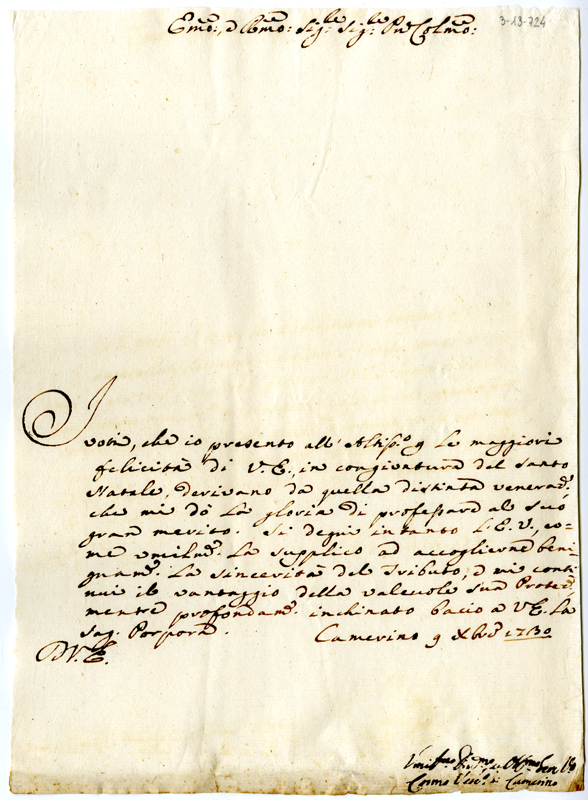 3-13-724
Emo:, e Rmo: Sigre Sigre Pne Colmo:
I voti, che io presento all' Altismo p le maggiori
felicità di V. E., in congiuntura del Santo
Natale, derivano da quella distinta veneraz:
che mi dà la gloria di professare al suo
gran merito. Si degni intanto l'E. V., co=
me umilmte la supplico ad accoglierne beni
gnamte la sincerità del Tributo, e mi conti
nui il vantaggio della valevole sua Protez:
mentre profondamte inchinato bacio a V. E. la
Sag. Porpora. Camerino 9 Xbre 1730
D V. E.
Umilmo Divmo Obblmo
Cosmo Vesco di Camerino